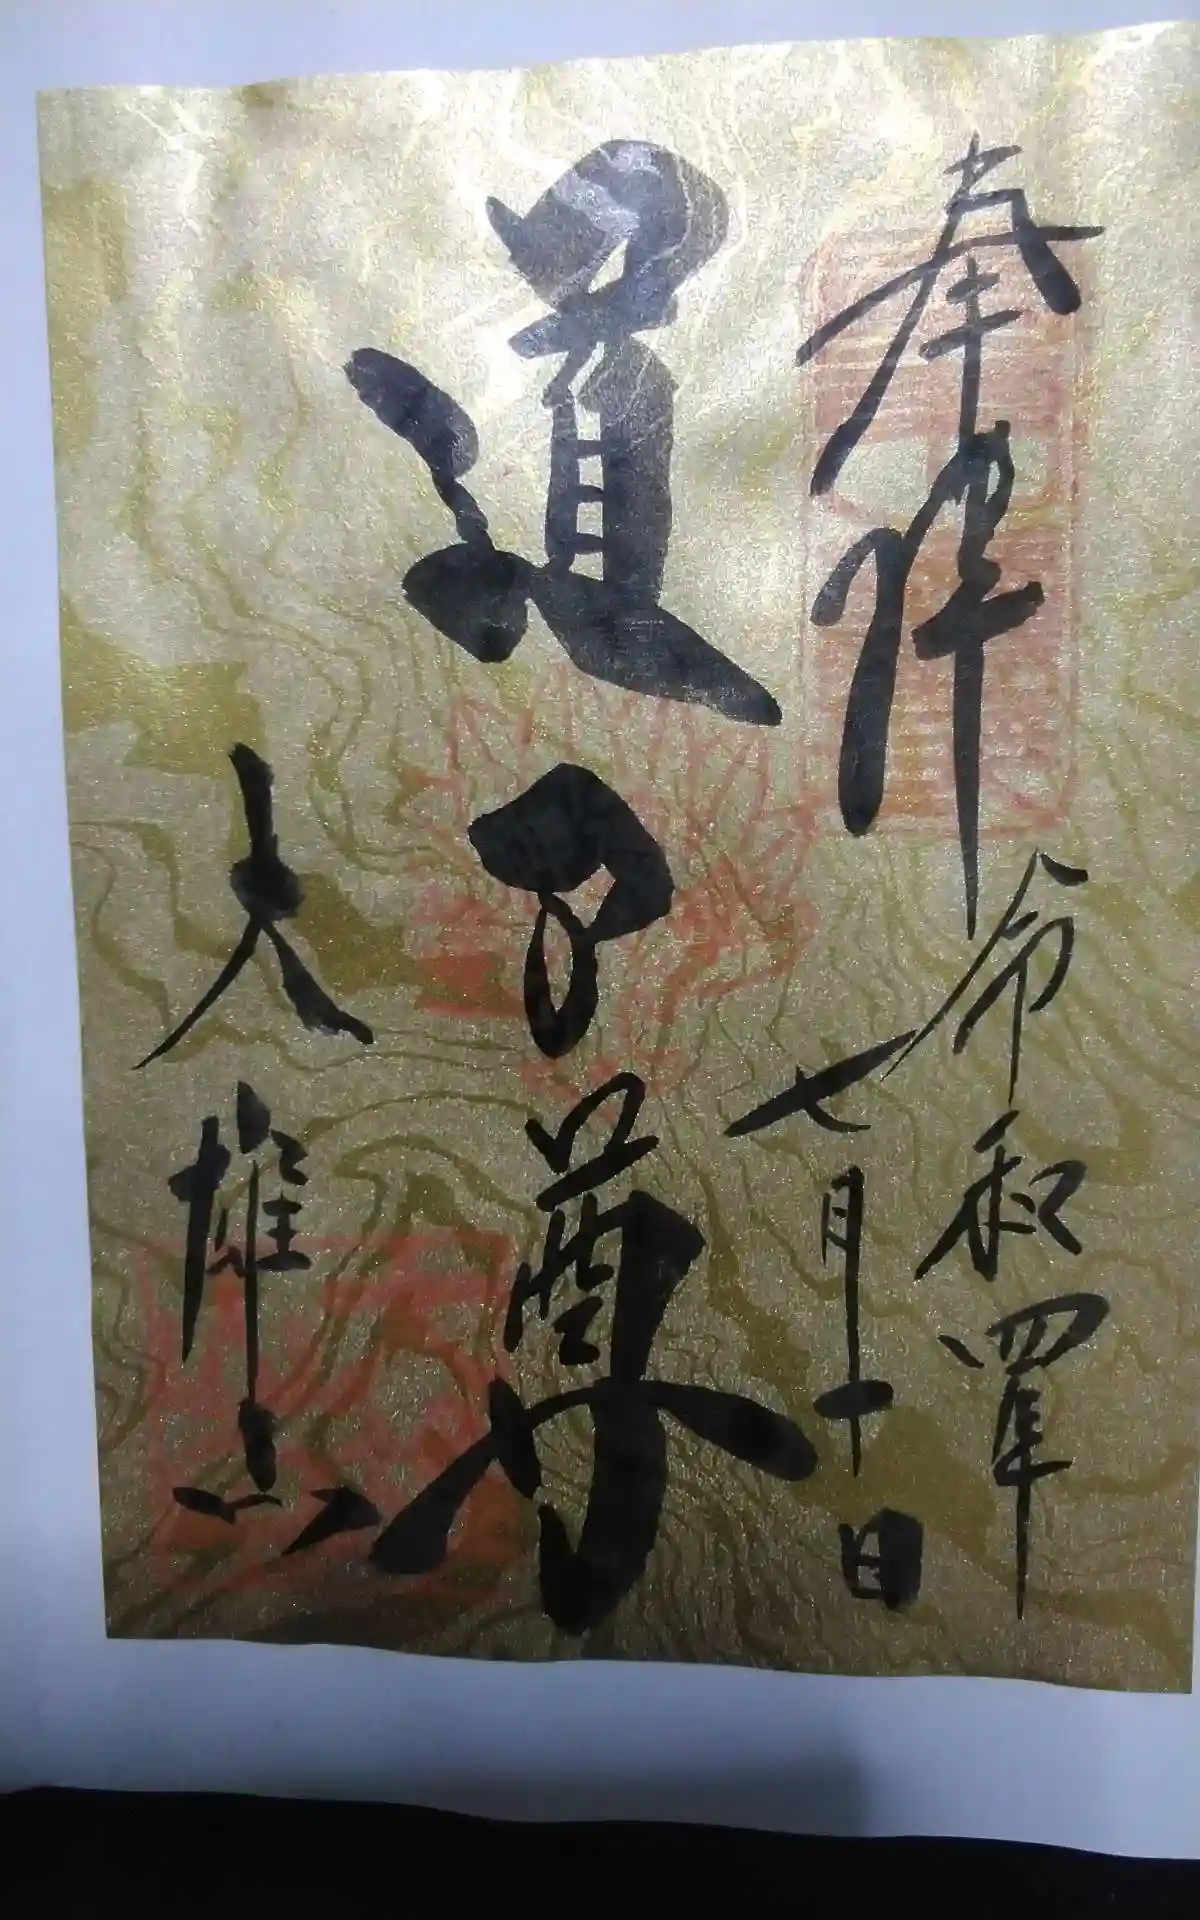 奉拝
令和四年
七月十日
道了尊
大雄山